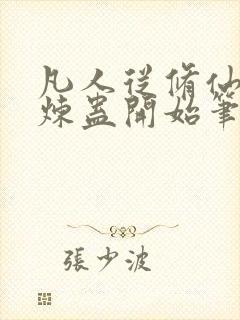 凡人從脩仙
煉蠱開始筆
張少波